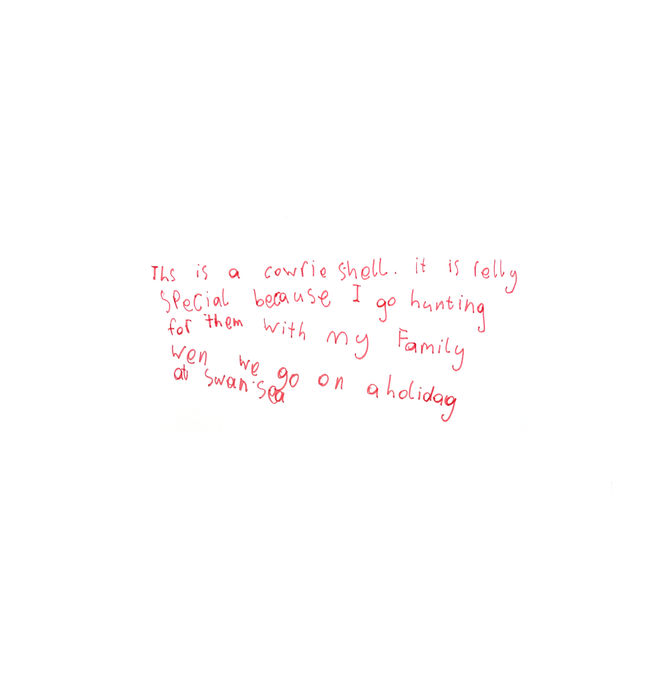 Ths is a cowrie shell. it is relly
special because I go hunting
for them with my Family
wen we go on a holiday
at swansea